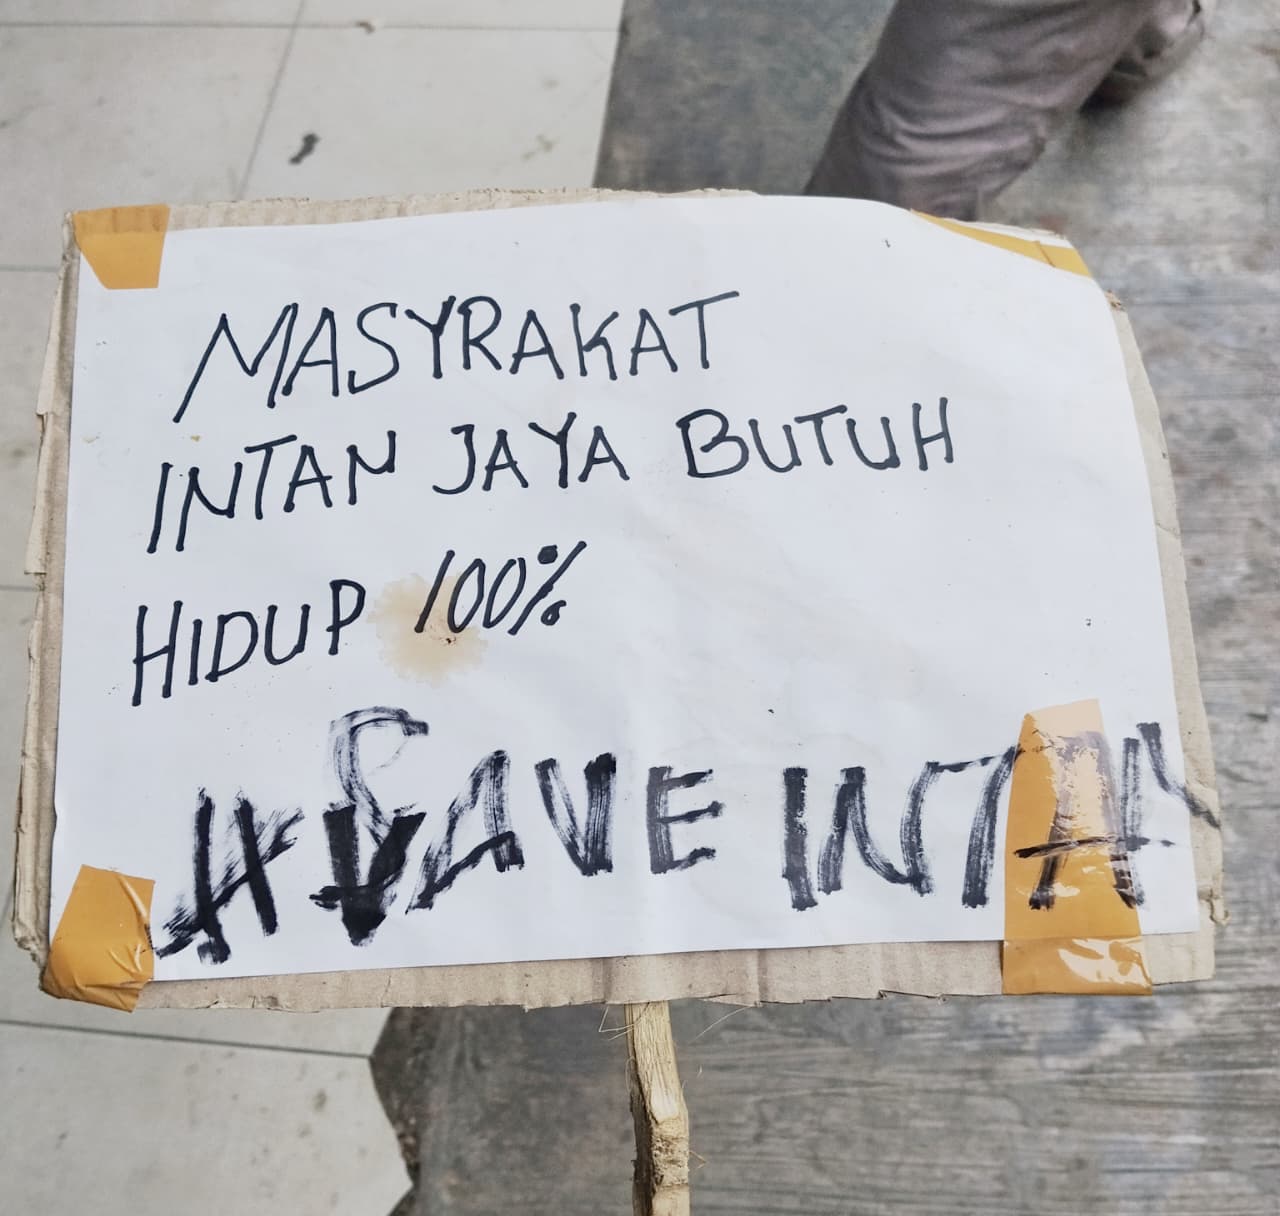 MASYRAKAT
INTAN JAYA BUTUH
HIDUP 100%
# SAVE INTAN